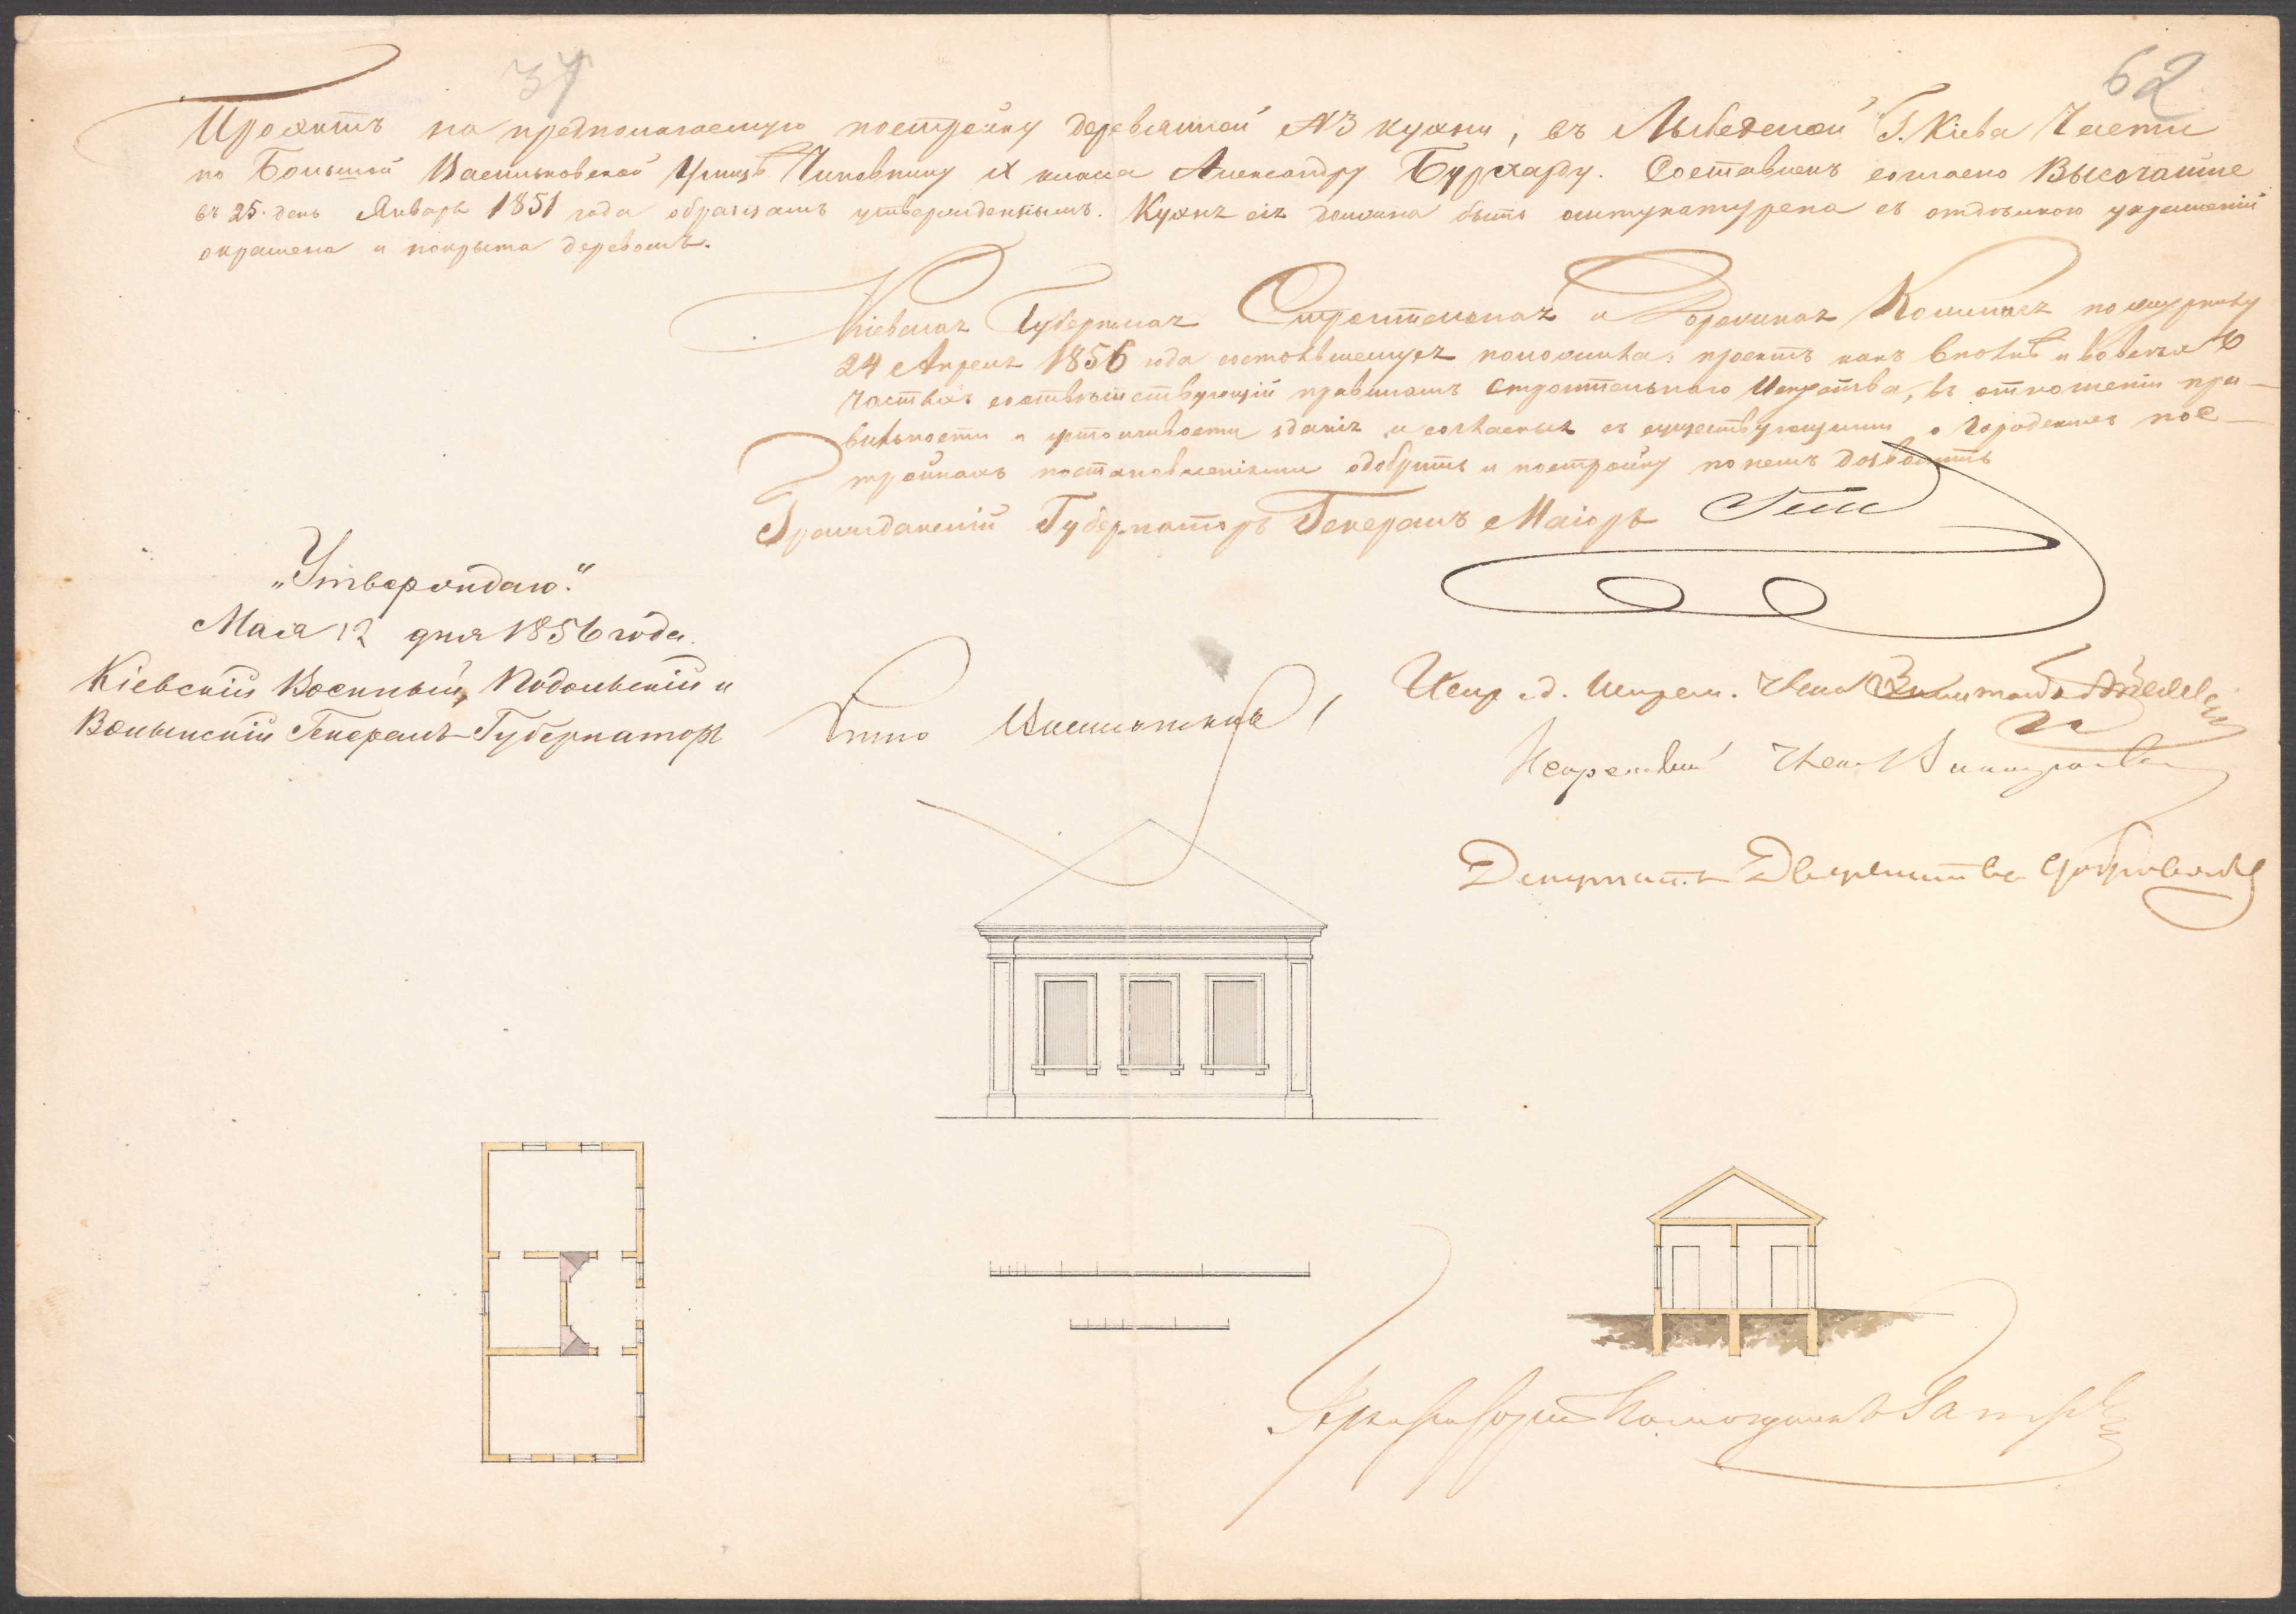 37
62
Проэктъ на предполагаемую постройку деревянной №3 кухни, въ Лыбедской Г. Кіева Части
по Большой Васильковской Улицѣ Чиновнику IX класса Александру Бурхарду. Составленъ согласно Высочайше
въ 25 день Января 1851 года образцамъ утвержденнымъ. Кухня сія должна быть оштукатурена съ отдѣлкою украшеній
окрашена и покрыта деревомъ.
Кіевская Губернская Строительная и Дорожная Комиссія по журналу
24 Апрѣля 1856 года состоявшемуся положила: проектъ какъ вполнѣ и во всѣхъ
частяхъ соотвѣтствующій правиламъ Строительнаго Искуства, въ отношеніи пра-
вильности и устойчивости зданія и согласный съ существующими о Городскихъ пос-
тройкахъ постановленіями одобрить и постройку по немъ дозволить
Гражданскій Губернаторъ Генералъ Маіоръ
„Утверждаю."
Мая 12 дня 1856 года.
Кіевскій Военный, Подольскій и
Волынскій Генералъ-Губернаторъ
Испр. д. Искусн. Члена
Искусный Членъ
Депутатъ Дворянства